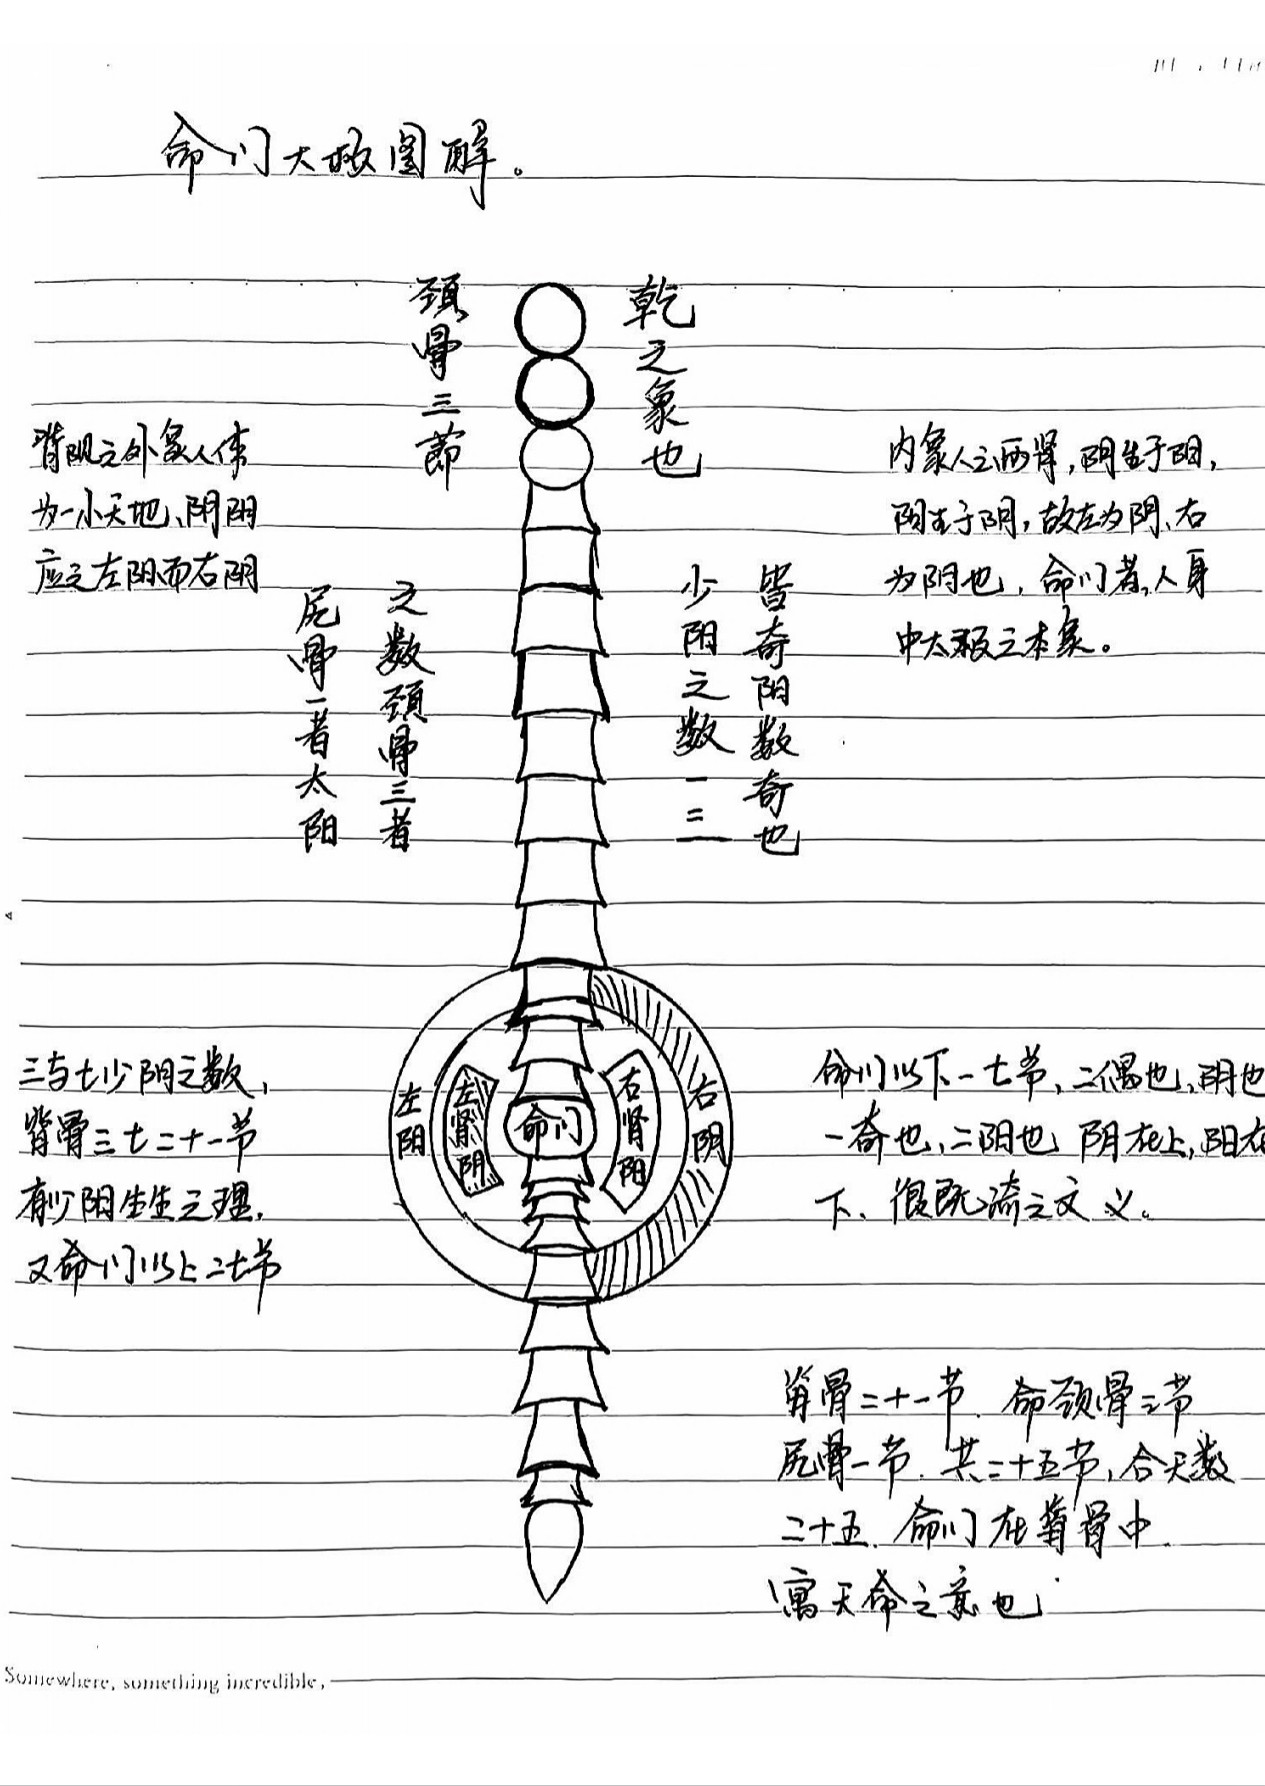 命门大极图解。
颈骨三節
乾之象也
背阳之外象人体
为一小天地、阴阳
应之左阳而右阴
内象人之两肾,阴生于阳,
阳生于阴,故左为阴、右
为阳也,命门者,人身
中太极之本象。
皆奇阳数奇也
少阳之数一三
之数颈骨三者
尻骨一者太阳
左阳
左肾阴
命门
右肾阳
右阴
三与七少阳之数,
脊骨三七二十一节
有少阳生生之理,
又命门以上二七节
命门以下一七节,二偶也,阴也
一奇也,二阴也 阴在上,阳在
下、之文义。
脊骨二十一节. 命颈骨三节
尻骨一节. 共二十五节,合天数
二十五. 命门在脊骨中.
寓天命之意也
Somewhere, something incredible,